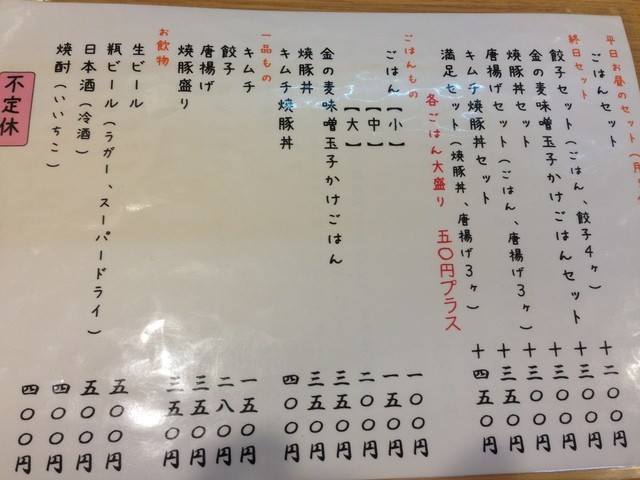 平日お昼のセット(月
ごはんセット 十二〇〇円
終日セット
餃子セット(ごはん、餃子4ヶ) 十三〇〇円
金の麦味噌玉子かけごはんセット 十三五〇円
焼豚丼セット 十三五〇円
唐揚げセット(ごはん、唐揚げ3ヶ) 十三〇〇円
キムチ焼豚丼セット 十三五〇円
満足セット(焼豚丼、唐揚げ3ヶ) 十四五〇円
各ごはん大盛り 五〇円プラス
ごはんもの
ごはん【小】 一〇〇円
【中】 一五〇円
【大】 二〇〇円
金の麦味噌玉子かけごはん 三五〇円
焼豚丼 三五〇円
キムチ焼豚丼 四〇〇円
一品もの
キムチ 一五〇円
餃子 二八〇円
唐揚げ 三五〇円
焼豚盛り 三五〇円
お飲物
生ビール 五〇〇円
瓶ビール(ラガー、スーパードライ) 五〇〇円
日本酒(冷酒) 四〇〇円
焼酎(いいちこ) 四〇〇円
不定休